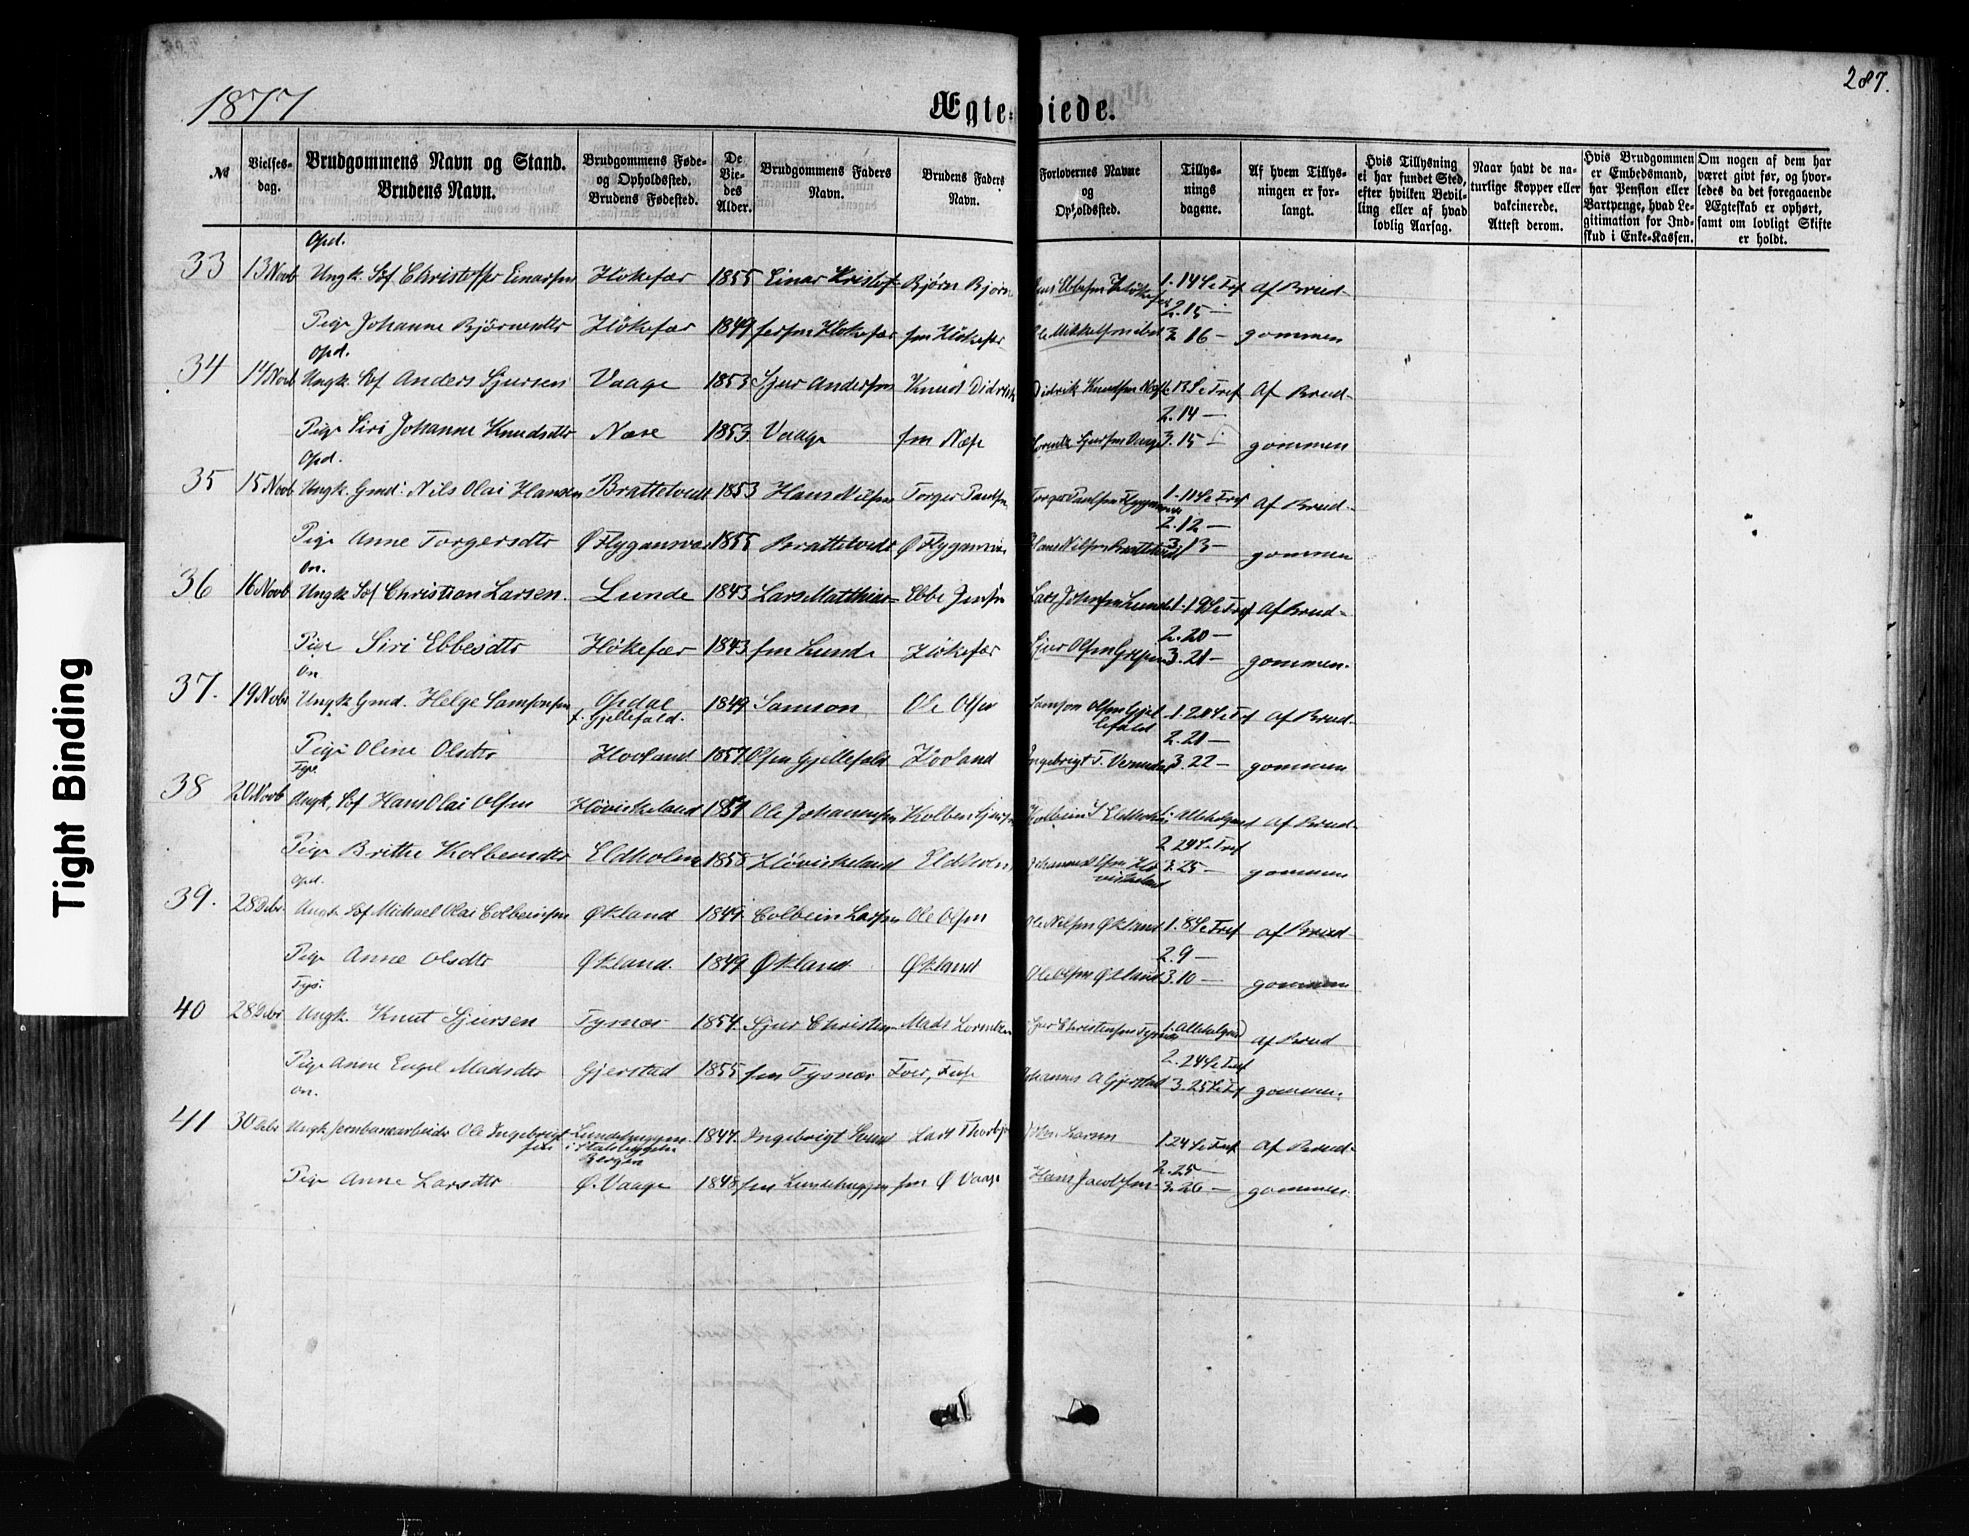 1877
287.
Ægteviede.
№
Vielses-
dag.
Brudgommens Navn og Stand.
Brudens Navn.
Brudgommens Føde-
og Opholdssted.
Brudens Fødested.
De
Vie-
des
Alder.
Brudgommens Faders
Navn.
Brudens Faders
Navn.
Forlovernes Navne
og
Opholdssted.
Tillys-
nings
dagene.
Af hvem Tillys-
ningen er for-
langt.
Hvis Tillysning
ei har fundet Sted,
efter hvilken Bevil-
ling eller af hvad
lovlig Aarsag.
Naar havt de na-
turlige Kopper eller
vakcinerede.
Attest derom.
Hvis Brudgommen
er Embedsmand,
har Pension eller
Vartpenge, hvad Le-
gitimation for Ind-
skud i Enke-Kassen.
Om nogen af dem har
været givt før, og hvor-
ledes da det foregaaende
Ægteskab er ophørt,
samt om lovligt Skifte
er holdt.
Opd.
33 13 Novb Ungk. Søf Christoffer Einarsen Høkefær 1855 Einar Kristof- Bjørn Bjørn 1. 14 S e Tref af Brud-
2. 15 -
Pige Johanne Bjørnsdtr Høkefær 1849 fersen Høkefær sen Høkefær Ole Mikkelsen ibd 3. 16 - gommen
Opd.
34 14 Novb Ungk. Søf Anders Sjursen Vaage 1853 Sjur Andersen Knud Didrik Didrik Knudsen 1. 13 S e Tref af Brud-
2. 14 -
Pige Siri Johanne Knudsdtr Næse 1853 Vaage sen Næse Sjursen Vaage 3. 15 - gommen
Opd.
35 15 Novb Ungk. Gmd. Nils Olai Hansen Brattetvedt 1853 Hans Nilsen Torger Paulsen Torger Paulsen 1. 11 S e Tref af Brud-
2. 12 -
Pige Anne Torgersdtr Ø Flygansvær 1855 Brattetvedt Ø Flygansvær Hans Nilsen Brattetvedt 3. 13 - gommen
On.
36 16 Novb Ungk Søf Christian Larsen. Lunde 1843 Lars Matthias- Ebbe Jensen Lars Johnsen Lunde 1. 19 S e Tref af Brud-
2. 20 -
Pige Siri Ebbesdtr Høkefær 1843 sen Lunde Høkefær Sjur Olsen 3. 21 - gommen.
On.
37. 19 Novb Ungk Gmd. Helge Samsonsen Opdal 1849 Samson Ole Olsen Samson Olsen Gjel- 1. 20 S e Tref af Brud-
f. Gjellefald. lefald
2. 21 -
Pige Oline Olsdtr Hovland 1857 Olsen Gjellefald Hovland Ingebrigt T. 3. 22 - gommen
Tys.
38 20 Novb Ungk. Søf Hans Olai Olsen Høviskeland 1851 Ole Johannesen Kolben Sjursen Kolbein S Eldholm 1. Allehelgensd af Brud-
2 24 S e Tref
Pige Brithe Kolbensdtr Eldholm 1855 Høviskeland Eldholm Johannes Olsen Hø- 3. 25 - gommen
viskeland
Opd.
39. 28 Debr. Ungk Søf Michael Olai Colbeinsen Økland 1849 Colbein Larsen Ole Olsen Ole Nilsen Økland 1. 8 S e Tref af Brud-
2. 9 -
Pige Anne Olsdtr Økland. 1849 Økland Økland Ole Olsen Økland 3. 10 - gommen
Tys.
40 28 Debr Ungk. Knut Sjursen Tysnæs 1854 Sjur Christen- Mads Lorentzen Sjur Christensen Tysnæs 1. Allehelgensd af Brud
2. 24 S e Tref
Pige Anne Engel Madsdtr Gjerstad 1855 sen Tysnæs Johannes A Gjerstad 3. 25 S e Tref gommen.
On.
41 30 Debr Ungk jernbanearbeider Ole Ingebrigt- Lundebyggen 1847. Ingebrigt Lars Thorbjørn 1 24 S e Tref af Brud-
sen i Statsbyggelse
Bergen
2. 25 -
Pige Anne Larsdtr Ø. Vaage 1848 sen Lundebyggen sen Ø Vaage Hans Jacobsen 3. 26 - gommen.
Tight Binding